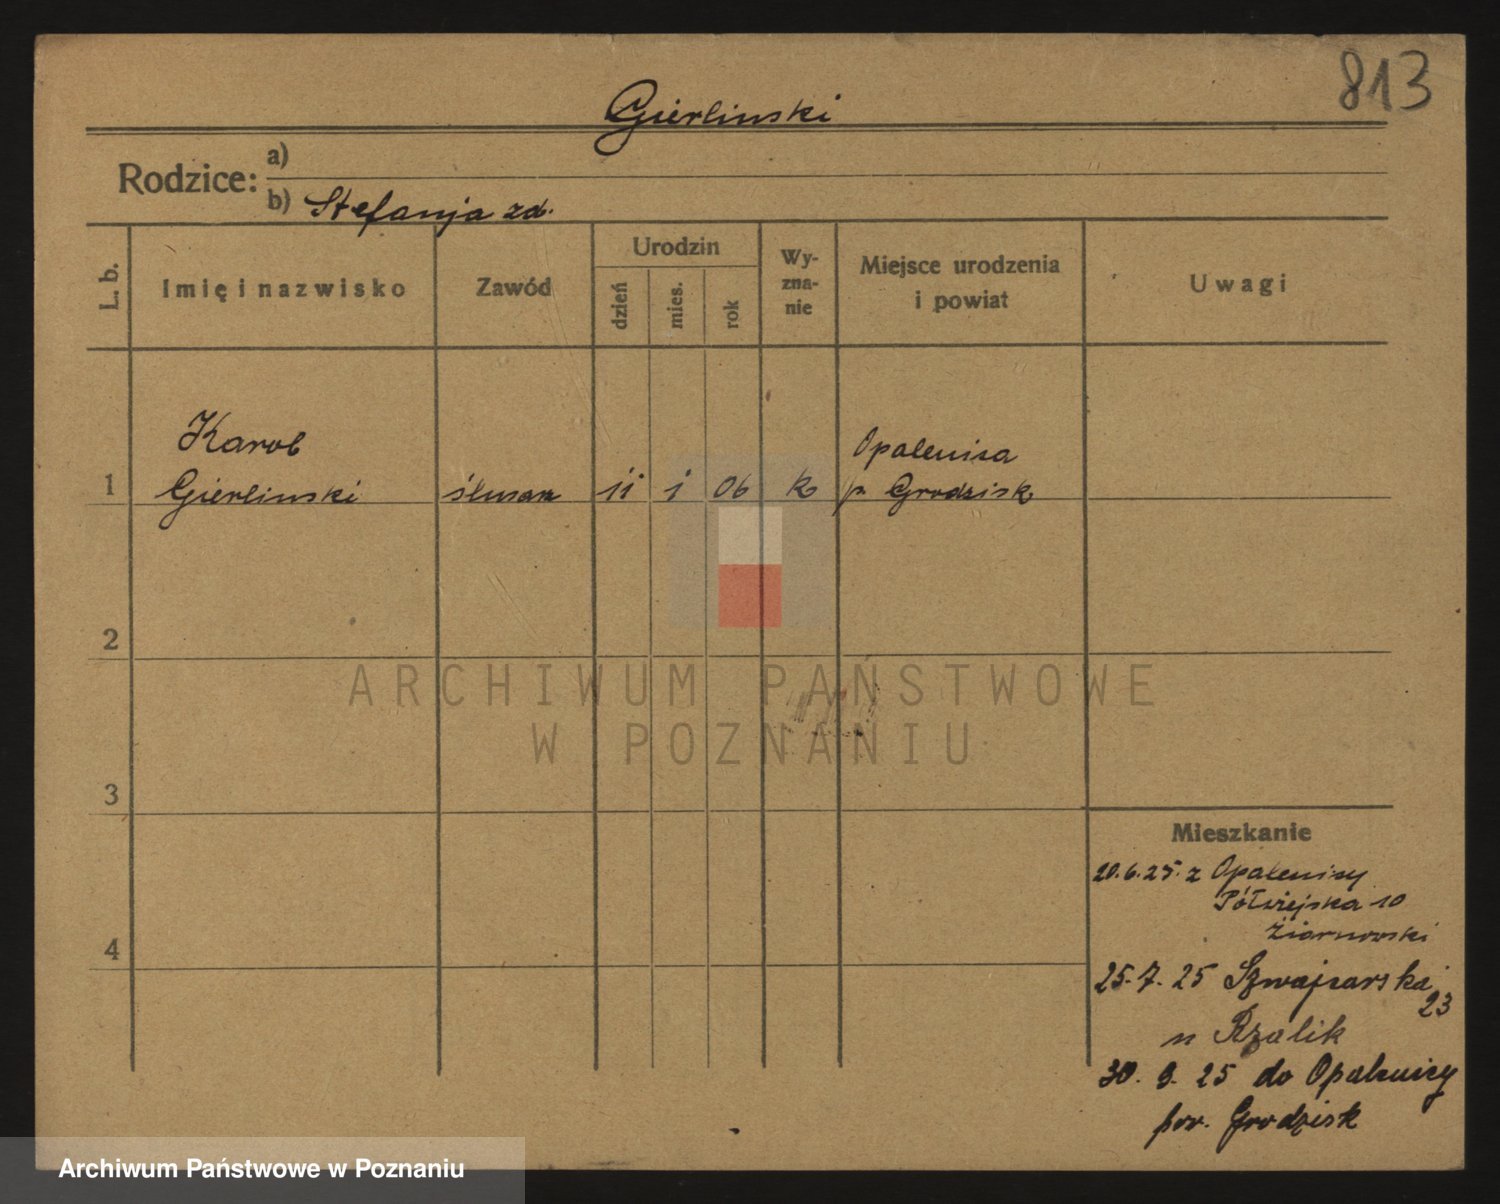 813
Gierlinski
Rodzice: a)
b) Stefanja zd.
L. b.
Imię i nazwisko
Zawód
Urodzin
dzień
mies.
rok
Wy-
zna-
nie
Miejsce urodzenia
i powiat
Uwagi
1
Karol
Gierlinski
ślusarz
11
1
06
k
Opalenica
p. Grodzisk
2
3
4
ARCHIWUM PAŃSTWOWE
W POZNANIU
Mieszkanie
20.6.25. z Opalenicy
Półwiejska 10
Żiarnowski
25.7.25 Szwajcarska
23
u Rzalik
30. 9. 25 do Opalenicy
pow. Grodzisk
Archiwum Państwowe w Poznaniu